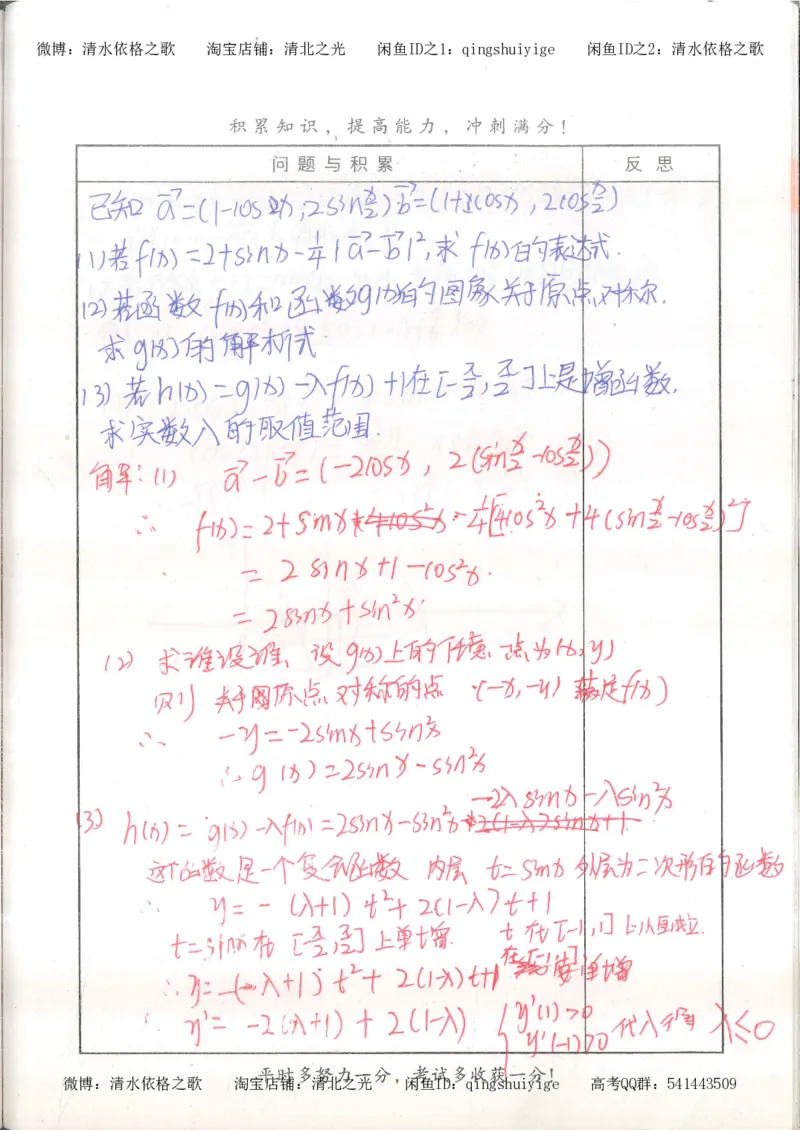 微博：清水依格之歌 淘宝店铺：清北之光 闲鱼ID之1：qingshuiyige 闲鱼ID之2：清水依格之歌
积累知识，提高能力，冲刺满分！
问题与积累 反思
已知 a⃗=(1-cosx, 2sin x/2) b⃗=(1+cosx, 2cos x/2)
(1)若f(x)=2+sinx-1/4|a⃗-b⃗|²,求f(x)的表达式.
(2)若函数f(x)和函数g(x)的图象关于原点对称.
求g(x)的解析式
(3)若h(x)=g(x)-λf(x)+1在[-π/2, π/2]上是增函数,
求实数λ的取值范围.
解:(1) a⃗-b⃗=(-2cosx, 2(sin x/2-cos x/2))
∴ f(x)=2+sinx-1/4[4cos²x+4(sin x/2-cos x/2)²]
=2sinx+1-cos²x.
=2sinx+sin²x
(2) 求谁设谁、设g(x)上的任意一点为(x,y)
则关于原点对称的点(-x,-y)满足f(x)
∴ -y=-2sinx+sin²x
∴g(x)=2sinx-sin²x
-2λsinx-λsin²x
(3) h(x)=g(x)-λf(x)=2sinx-sin²x
这个函数是一个复合函数 内层 t=sinx 外层为二次形的函数
∴ y=-(λ+1)t²+2(1-λ)t+1
t=sinx在[-π/2, π/2]上单增. t在[-1,1]上从恒成立.
∴y=-(λ+1)t²+2(1-λ)t+1 在[-1,1]要单增
y'=-2(λ+1)+2(1-λ) { y'(1)>0
y'(-1)>0 代入得 λ≤0
平时多努力一分，考试多收获一分！
微博：清水依格之歌 淘宝店铺：清北之光 闲鱼ID之1：qingshuiyige 高考QQ群：541443509